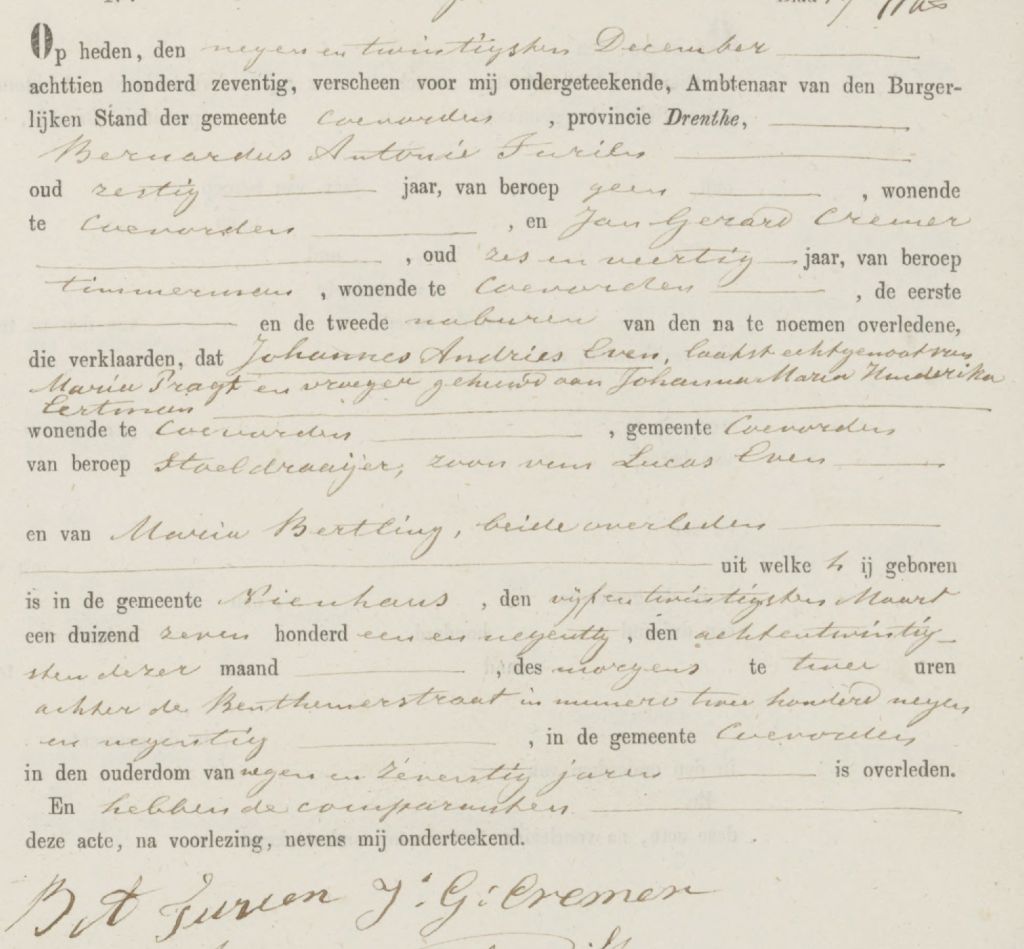 Op heden, den negen en twintigsten December
achttien honderd zeventig, verscheen voor mij ondergeteekende, Ambtenaar van den Burger-
lijken Stand der gemeente Coevorden, provincie Drenthe,
Bernardus Antonie
oud zestig jaar, van beroep geen, wonende
te Coevorden, en Jan Gerard Cremer
, oud zes en veertig jaar, van beroep
timmerman, wonende te Coevorden, de eerste
en de tweede naburen van den na te noemen overledene,
die verklaarden, dat Johannes Andries Even, laatst echtgenoot van
Maria Pragt en vroeger gehuwd aan Johanna Maria Hinderika
wonende te Coevorden, gemeente Coevorden
van beroep Stoeldraaijer, zoon van Lucas Even
en van Maria Bertling, beide overleden
uit welke h ij geboren
is in de gemeente Nienhaus, den vijf en twintigsten Maart
een duizend zeven honderd een en negentig, den achtentwintig-
sten dezer maand, des morgens te twee uren
achter de Benthemerstraat in numero twee honderd negen
en negentig, in de gemeente Coevorden
in den ouderdom van negen en zeventig jaren is overleden.
En hebben de comparanten
deze acte, na voorlezing, nevens mij onderteekend.
B A J: G: Cremer